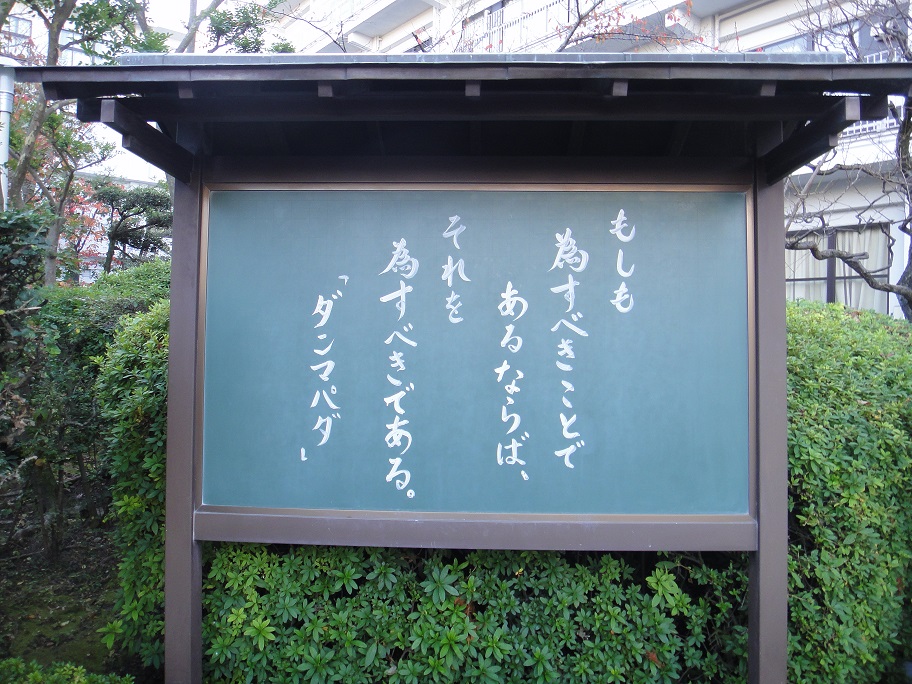 もしも
為すべきことで
あるならば、
それを
為すべきである。
「ダンマパダ」